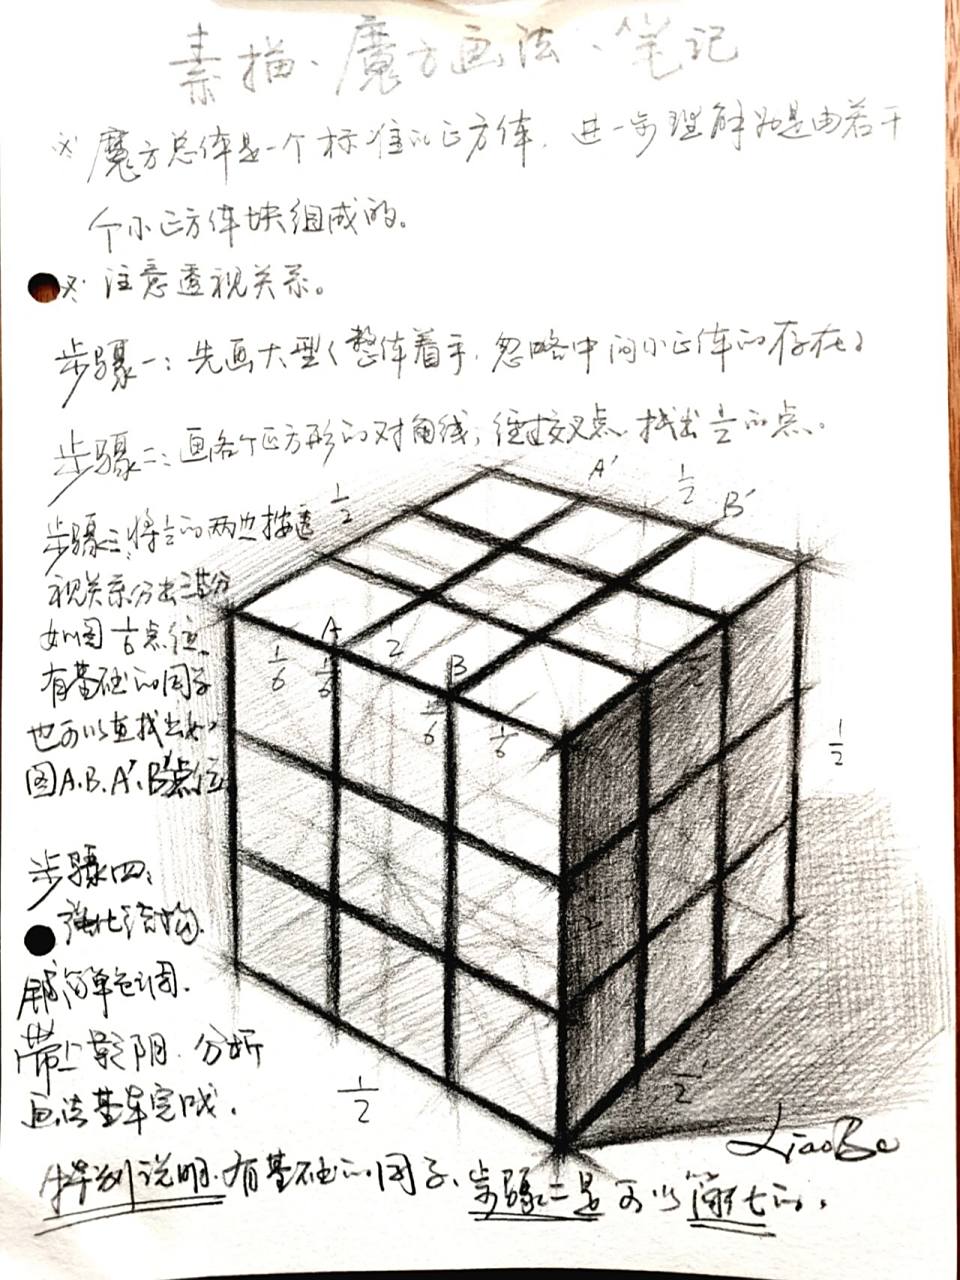 素描、魔方画法、笔记
※ 魔方总体是一个标准的正方体，进一步理解为是由若干
个小正方体块组成的。
※ 注意透视关系。
步骤一：先画大型（整体着手，忽略中间小正体的存在）
步骤二：画各个正方形的对角线，经过交叉点，找出1/2的点。
步骤三：将1/2的两边按透
视关系分出三等分
如图1/6点位。
有基础的同学
也可以直找出如
图A、B、A′、B′点位
步骤四：
强化结构，
铺简单色调，
带上影阴，分析
画法基本完成。
特别说明，有基础的同学，步骤二是可以简化的。
A′
1/2
B′
1/2
A
2
B
1/6
1/6
1/6
1/6
1/2
1/2
1/2
LiaoBo